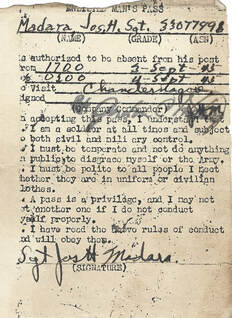 ENLISTED MAN'S PASS
Madara Jos. H. Sgt. 33077998
(NAME) (GRADE) (ASN)
is authorized to be absent from his post
from 1700 3 Sept 45
to 0100 4 Sept 45
to visit
igned
(Company Commander)
n adopting this pass, I understand th
. I am a soldier at all times and subject
o both civil and military control.
. I must be temperate and not do anything
n public to disgrace myself or the Army.
. I must be polite to all people I meet
hether they are in uniform or civilian
lothes.
. A pass is a privilege, and I may not
et another one if I do not conduct
yself properly.
. I have read the above rules of conduct
nd will obey them.
Sgt Jos H Madara
(SIGNATURE)